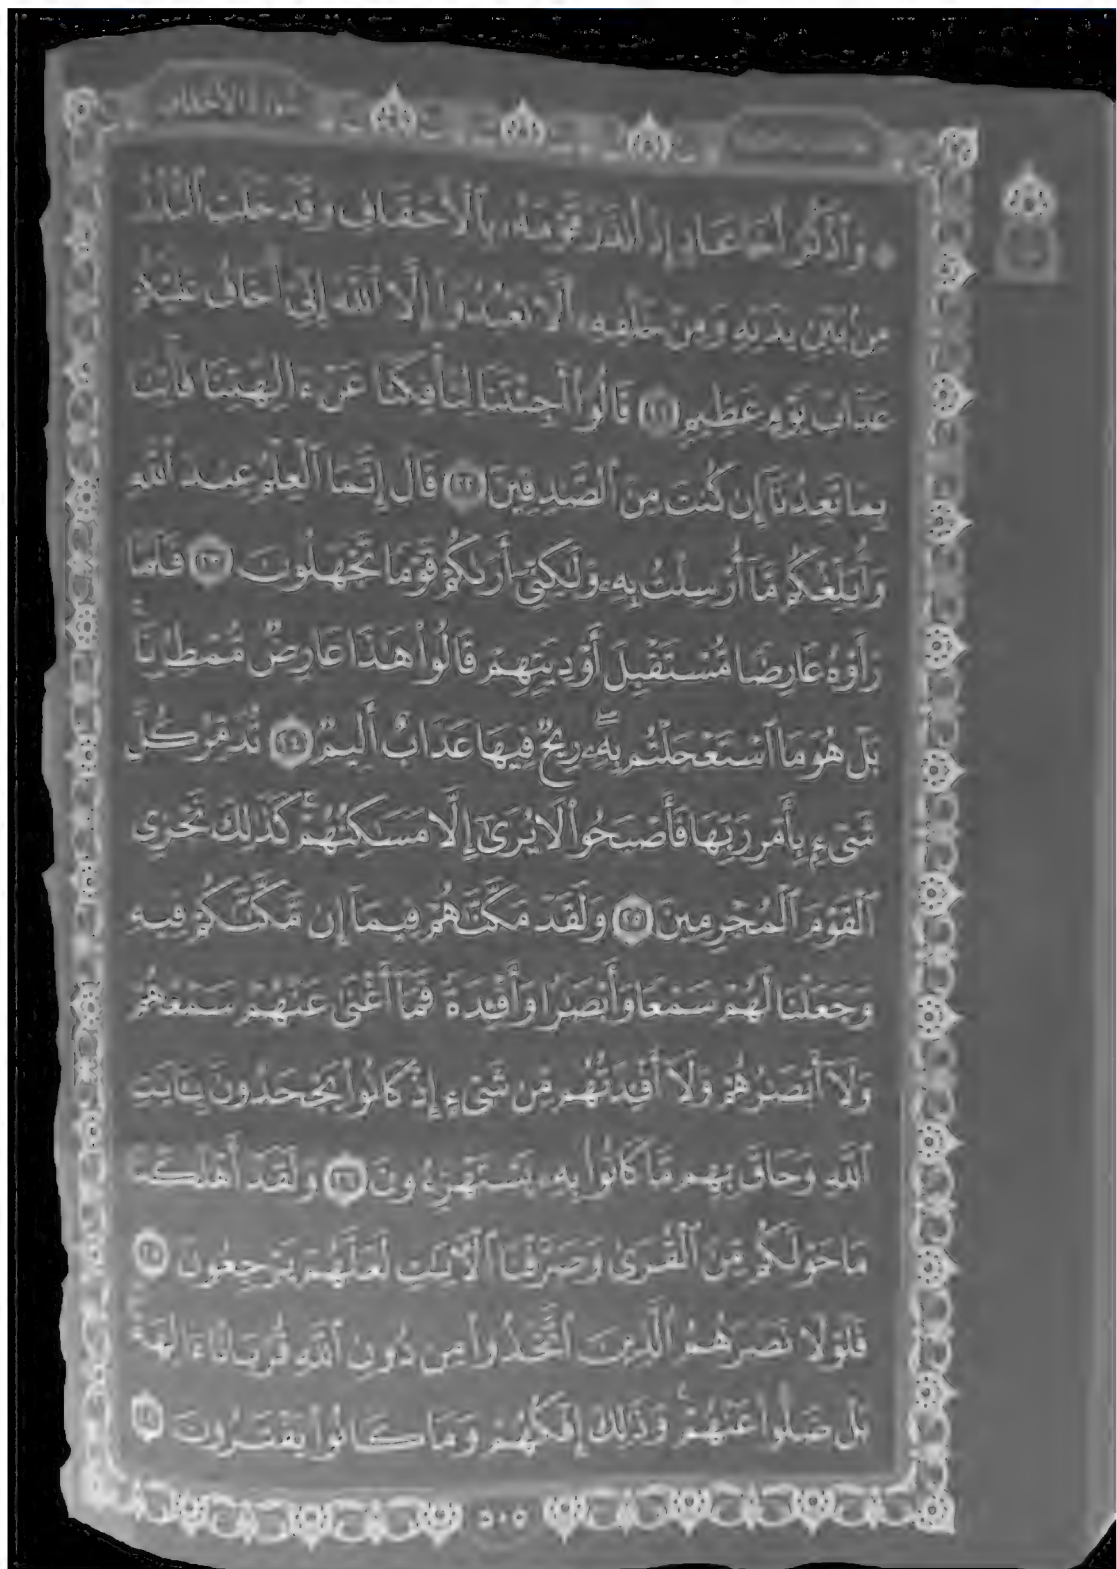 سورة الأحقاف
۞ وَٱذْكُرْ أَخَا عَادٍ إِذْ أَنذَرَ قَوْمَهُۥ بِٱلْأَحْقَافِ وَقَدْ خَلَتِ ٱلنُّذُرُ
مِنۢ بَيْنِ يَدَيْهِ وَمِنْ خَلْفِهِۦٓ أَلَّا تَعْبُدُوٓا۟ إِلَّا ٱللَّهَ إِنِّىٓ أَخَافُ عَلَيْكُمْ
عَذَابَ يَوْمٍ عَظِيمٍ ٢١ قَالُوٓا۟ أَجِئْتَنَا لِتَأْفِكَنَا عَنْ ءَالِهَتِنَا فَأْتِنَا
بِمَا تَعِدُنَآ إِن كُنتَ مِنَ ٱلصَّٰدِقِينَ ٢٢ قَالَ إِنَّمَا ٱلْعِلْمُ عِندَ ٱللَّهِ
وَأُبَلِّغُكُم مَّآ أُرْسِلْتُ بِهِۦ وَلَٰكِنِّىٓ أَرَىٰكُمْ قَوْمًا تَجْهَلُونَ ٢٣ فَلَمَّا
رَأَوْهُ عَارِضًا مُّسْتَقْبِلَ أَوْدِيَتِهِمْ قَالُوا۟ هَٰذَا عَارِضٌ مُّمْطِرُنَا ۚ
بَلْ هُوَ مَا ٱسْتَعْجَلْتُم بِهِۦ ۖ رِيحٌ فِيهَا عَذَابٌ أَلِيمٌ ٢٤ تُدَمِّرُ كُلَّ
شَىْءٍۭ بِأَمْرِ رَبِّهَا فَأَصْبَحُوا۟ لَا يُرَىٰٓ إِلَّا مَسَٰكِنُهُمْ ۚ كَذَٰلِكَ نَجْزِى
ٱلْقَوْمَ ٱلْمُجْرِمِينَ ٢٥ وَلَقَدْ مَكَّنَّٰهُمْ فِيمَآ إِن مَّكَّنَّٰكُمْ فِيهِ
وَجَعَلْنَا لَهُمْ سَمْعًا وَأَبْصَٰرًا وَأَفْـِٔدَةً فَمَآ أَغْنَىٰ عَنْهُمْ سَمْعُهُمْ
وَلَآ أَبْصَٰرُهُمْ وَلَآ أَفْـِٔدَتُهُم مِّن شَىْءٍ إِذْ كَانُوا۟ يَجْحَدُونَ بِـَٔايَٰتِ
ٱللَّهِ وَحَاقَ بِهِم مَّا كَانُوا۟ بِهِۦ يَسْتَهْزِءُونَ ٢٦ وَلَقَدْ أَهْلَكْنَا
مَا حَوْلَكُم مِّنَ ٱلْقُرَىٰ وَصَرَّفْنَا ٱلْءَايَٰتِ لَعَلَّهُمْ يَرْجِعُونَ ٢٧
فَلَوْلَا نَصَرَهُمُ ٱلَّذِينَ ٱتَّخَذُوا۟ مِن دُونِ ٱللَّهِ قُرْبَانًا ءَالِهَةًۢ ۖ
بَلْ ضَلُّوا۟ عَنْهُمْ ۚ وَذَٰلِكَ إِفْكُهُمْ وَمَا كَانُوا۟ يَفْتَرُونَ ٢٨
٥٠٥